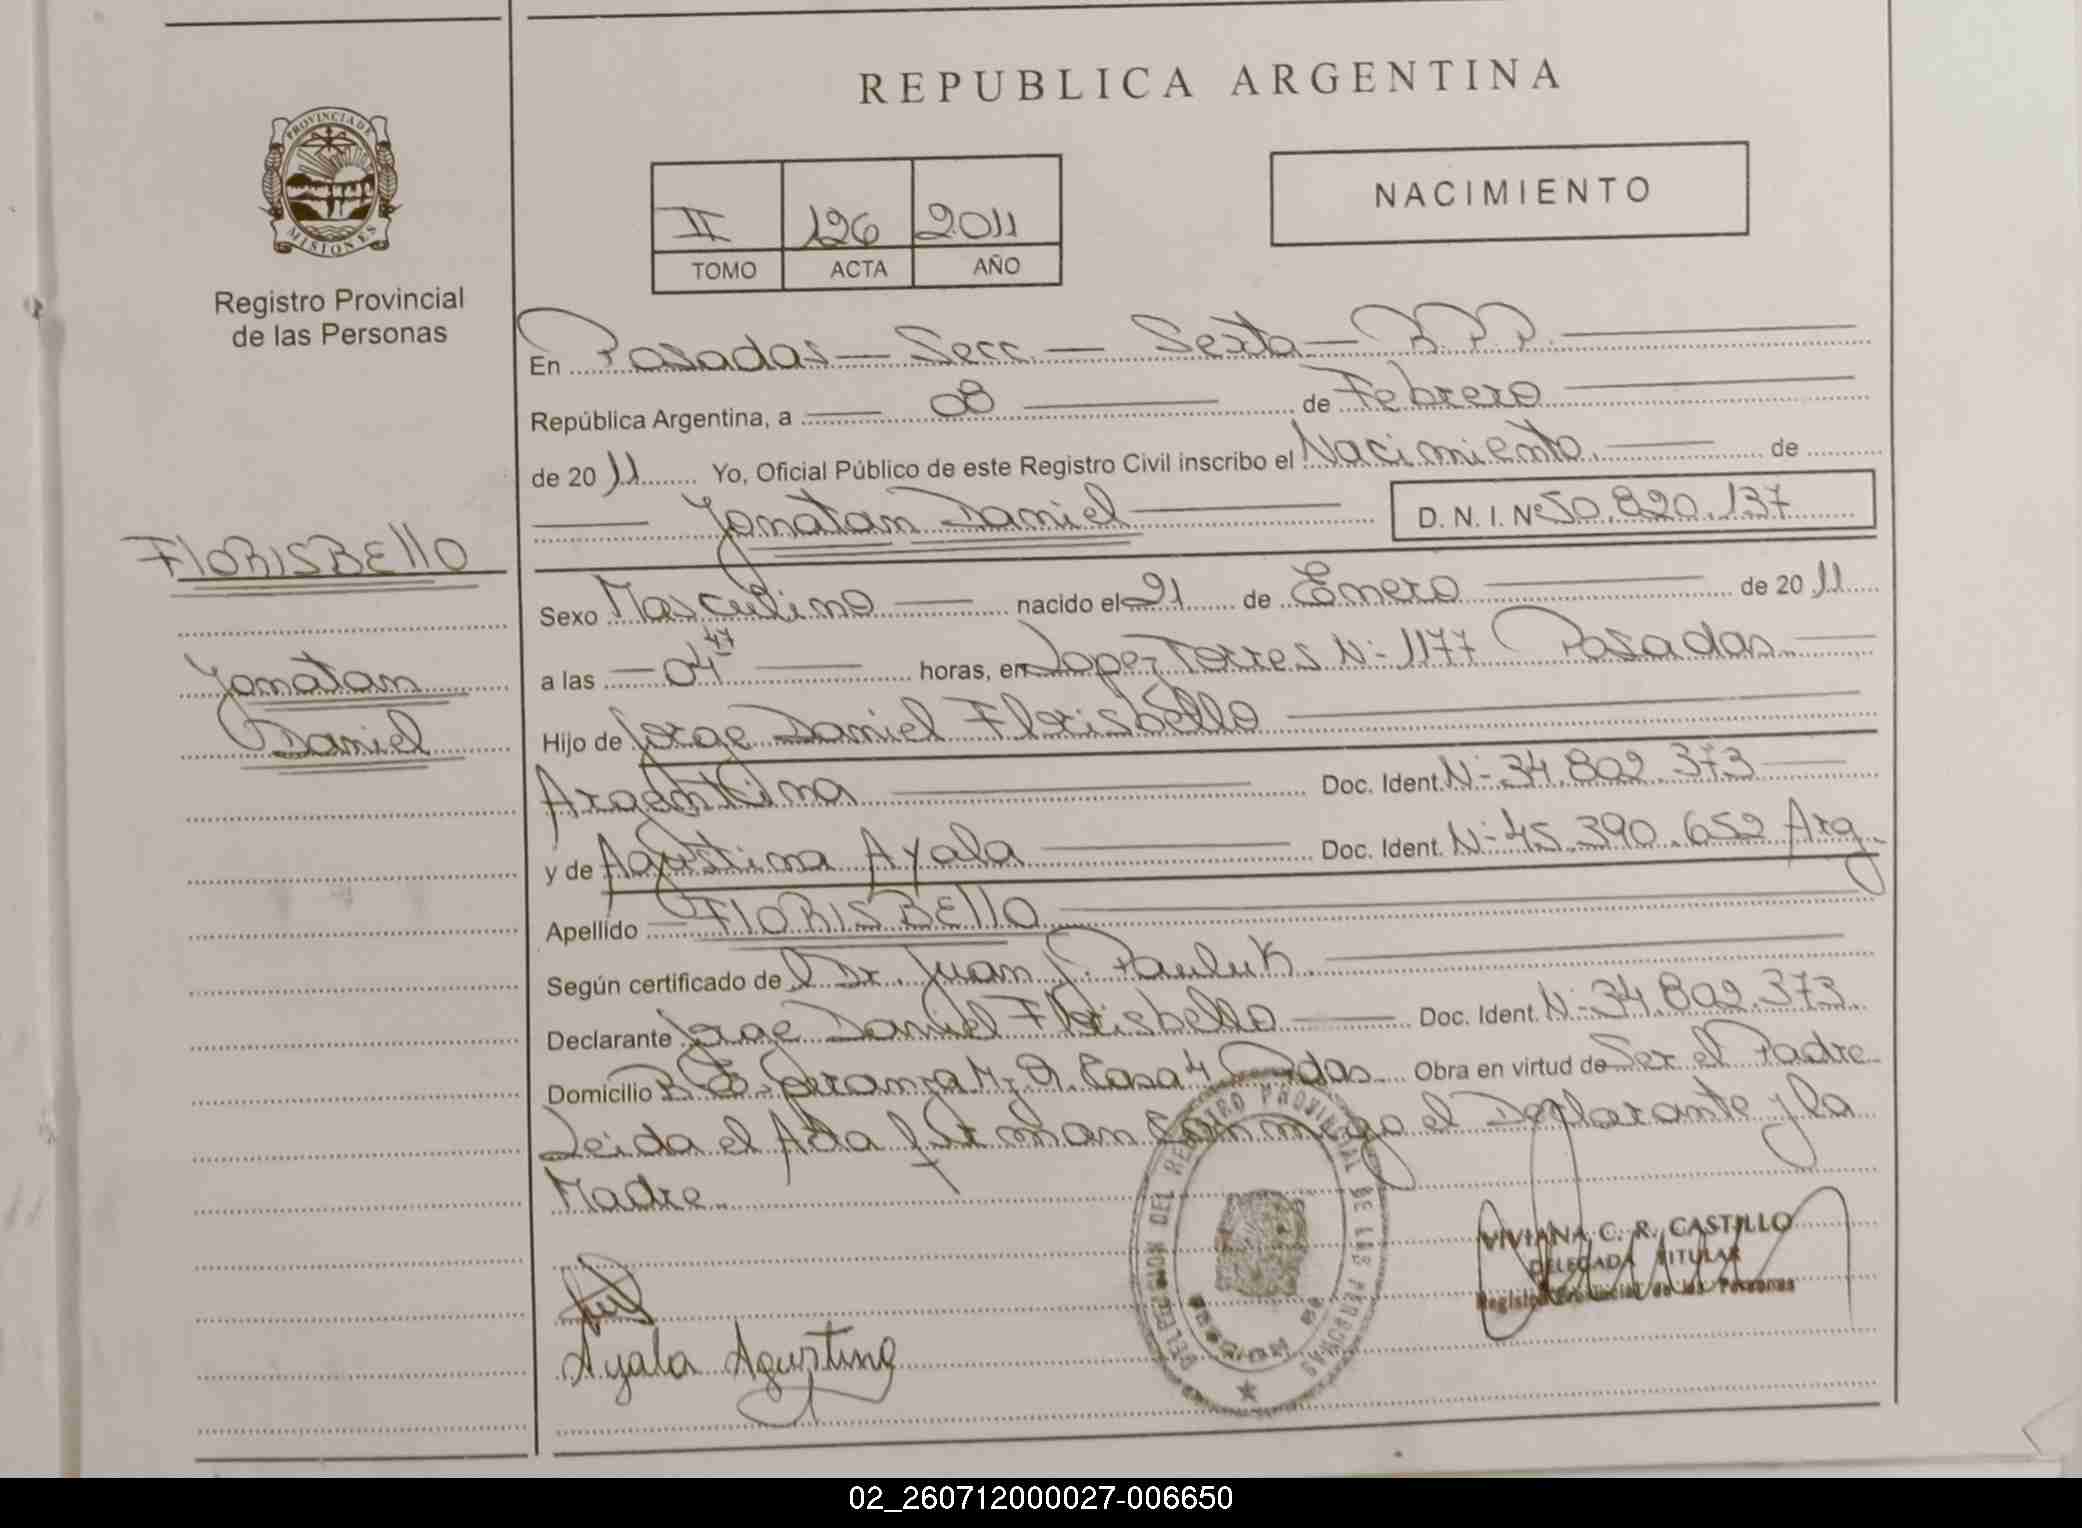 REPUBLICA ARGENTINA
PROVINCIA DE
MISIONES
Registro Provincial
de las Personas
NACIMIENTO
II 126 2011
TOMO ACTA AÑO
En Posadas — Secc. — Sexta — R.P.P.
República Argentina, a 08 de Febrero
de 2011 Yo, Oficial Público de este Registro Civil inscribo el Nacimiento. de
Jonatan Daniel D. N. I. Nº 50.820.137
FLORISBEllO
Jonatan
Daniel
Sexo Masculino nacido el 21 de Enero de 2011
a las 04 47 horas, en Lopez Torres Nº 1177 Posadas
Hijo de Jorge Daniel Florisbello
Argentina Doc. Ident. Nº 34.802.373
y de Agustina Ayala Doc. Ident. Nº 45.390.652 Arg.
Apellido FLORISBEllO
Según certificado de Dr. Juan J. Pauluk
Declarante Jorge Daniel Florisbello Doc. Ident. Nº 34.802.373
Domicilio Bº Esperanza Casa 4 Pdas Obra en virtud de Ser el Padre
Leida el Acta firman conmigo el Declarante y la
Madre
DELEGACION DEL REGISTRO PROVINCIAL DE LAS PERSONAS
VIVIANA C. R. CASTILLO
DELEGADA TITULAR
Registro Provincial de las Personas
Ayala Agustina
02_260712000027-006650